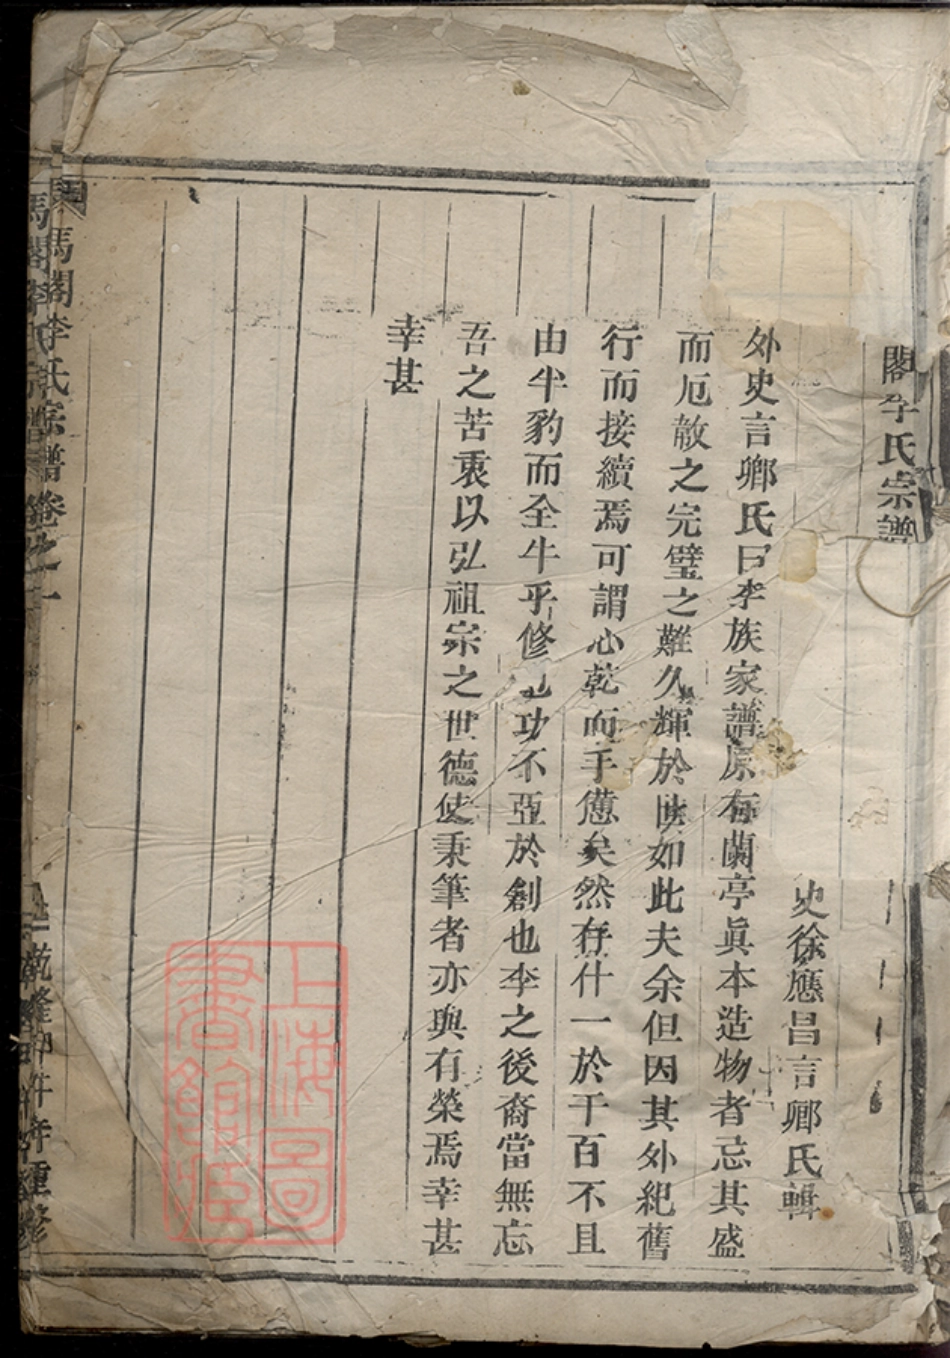 閣李氏宗譜
史徐應昌言卿氏輯
外史言卿氏曰李族家譜原有蘭亭眞本造物者忌其盛
而厄散之完璧之難久輝於世如此夫余但因其外紀舊
行而接續焉可謂心乾而手憊矣然存什一於千百不且
由半豹而全牛乎修之功不亞於創也李之後裔當無忘
吾之苦衷以弘祖宗之世德使秉筆者亦與有榮焉幸甚
幸甚
馬閣李氏宗譜卷之一
乾隆
年重修
上海圖
書館藏